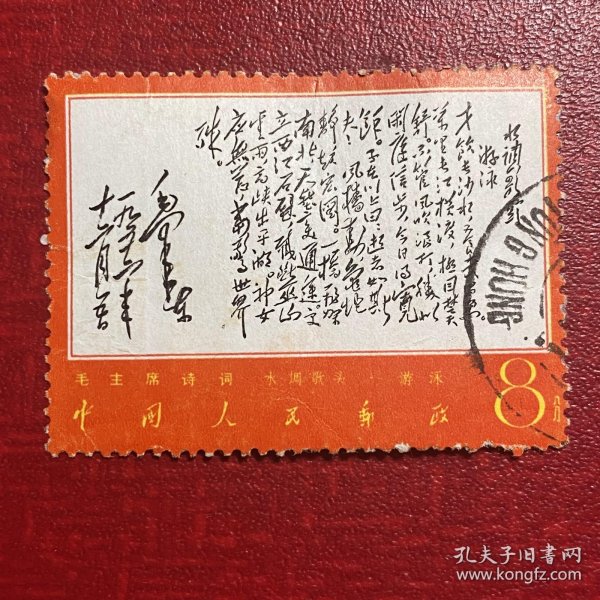 水调歌头
游泳
才饮长沙水
万里长江横渡，极目楚天
舒。不管风吹浪打，胜似
闲庭信步，今日得宽
馀。子在川上曰：逝者如斯
夫！风樯动，龟蛇
静，起宏图。一桥飞架
南北，天堑变通途。更
立西江石壁，截断巫山
云雨，高峡出平湖。神女
应无恙，当惊世界
殊。
毛泽东
一九五六年
十二月五日
毛主席诗词 水调歌头·游泳
中国人民邮政
8分
HUNG
孔夫子旧书网
www.kongfz.com